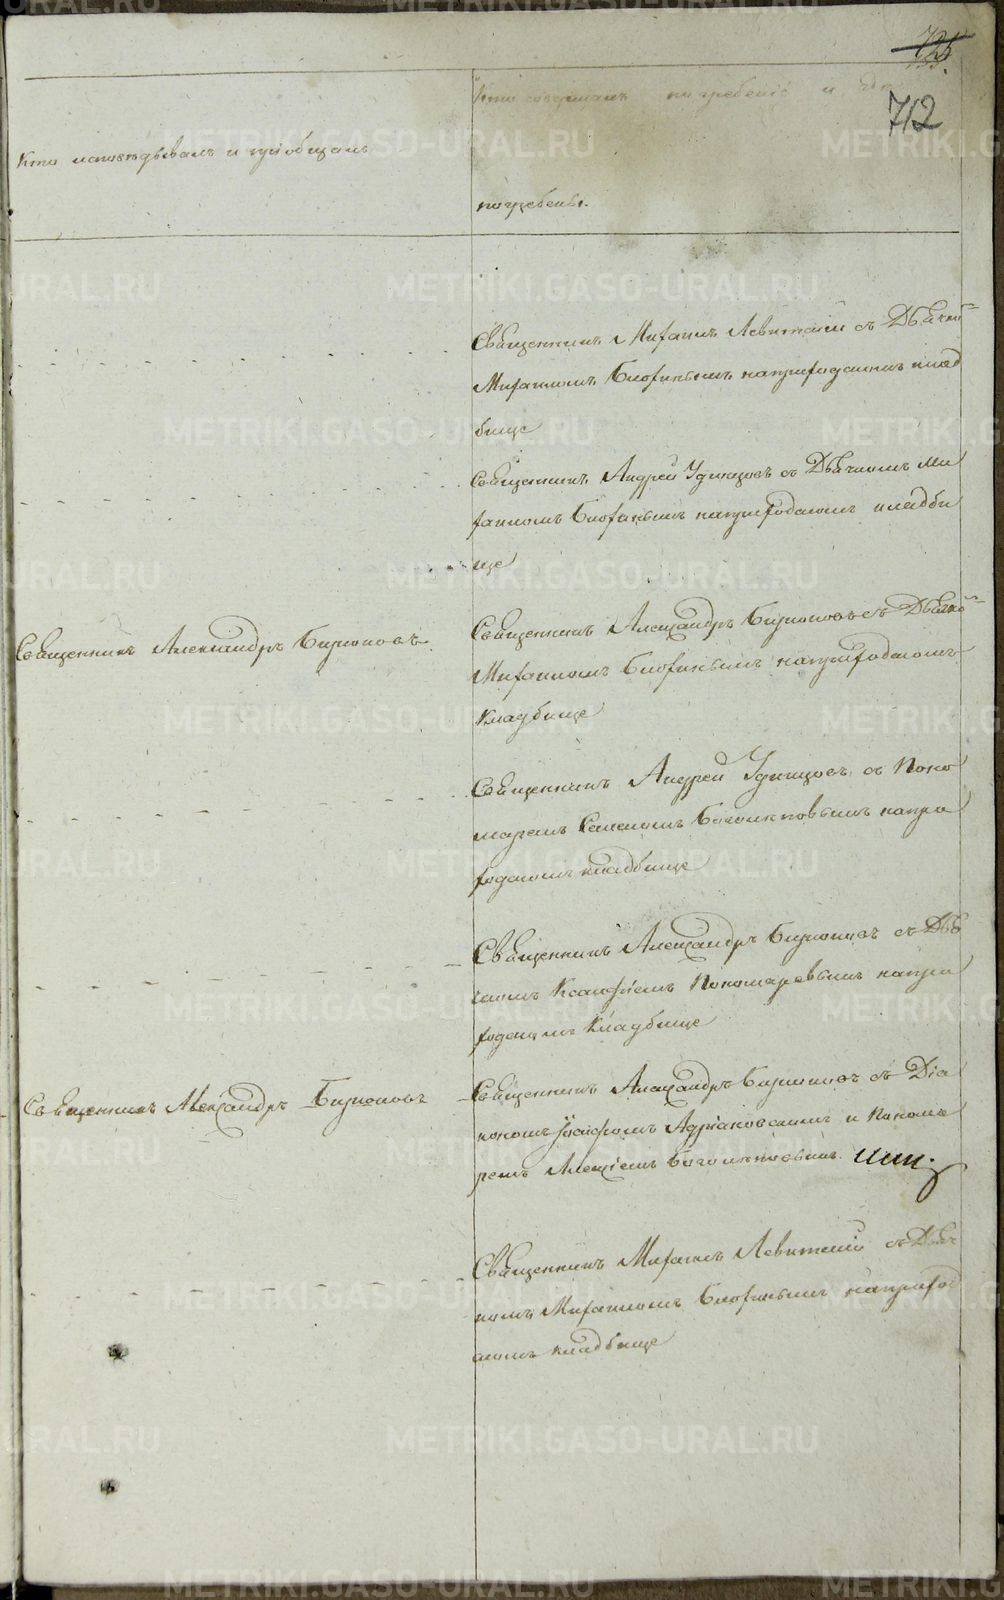 712
Кто исповѣдывалъ и пріобщалъ
Кто совершалъ погребеніе и гдѣ
погребены.
Священникъ Михаилъ Левитскій съ Дьячко=
Михаиломъ Біофиньімъ на приходскомъ клад
бище
Священникъ Андрей Удинцовъ съ Дьячкомъ Ми
хаиломъ на приходскомъ кладби
ще
Священникъ Александръ Бирюковъ
Священникъ Александръ Бирюковъ съ Дьячко=
Михаиломъ на приходскомъ
Кладбище
Священникъ Андрей Удинцовъ съ Поно
маремъ Боголеповымъ на при
ходскомъ кладбище
Священникъ Александръ Бирюковъ съ Дья
чкомъ Пономаревымъ на при
ходскомъ Кладбище
Священникъ Александръ Бирюковъ
Священникъ Александръ Бирюковъ съ Діа
кономъ Адріановскимъ и Понома
ремъ Алексіемъ Боголеповымъ
Священникъ Михаилъ Левитскій съ Дьяч
комъ Михаиломъ на приход
скомъ кладбище
METRIKI.GASO-URAL.RU